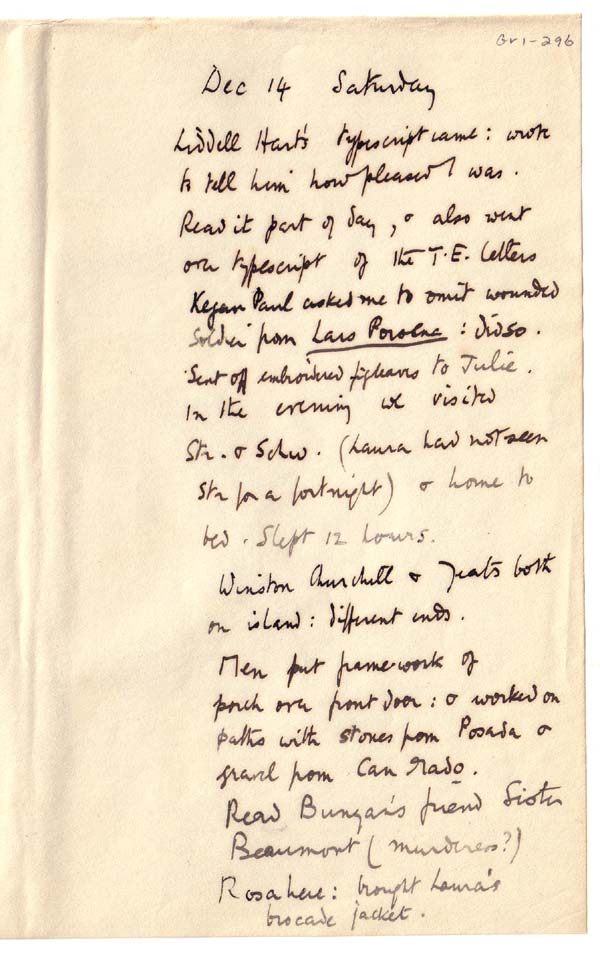 Gr1-296
Dec 14 Saturday
Liddell Hart's typescript came: wrote
to tell him how pleased I was.
Read it part of day, & also went
over typescript of the T.E. letters
Kegan Paul asked me to omit wounded
soldier from Lars Porsena: did so.
Sent off embroidered figleaves to Julie.
In the evening we visited
Str. & Schw. (Laura had not seen
Str for a fortnight) & home to
bed. Slept 12 hours.
Winston Churchill & Yeats both
on island: different ends.
Men put framework of
porch over front door: & worked on
paths with stones from Posada &
gravel from Can Mado.
Read Bunyan's friend Sister
Beaumont (murderess?)
Rosa here: brought Laura's
brocade jacket.